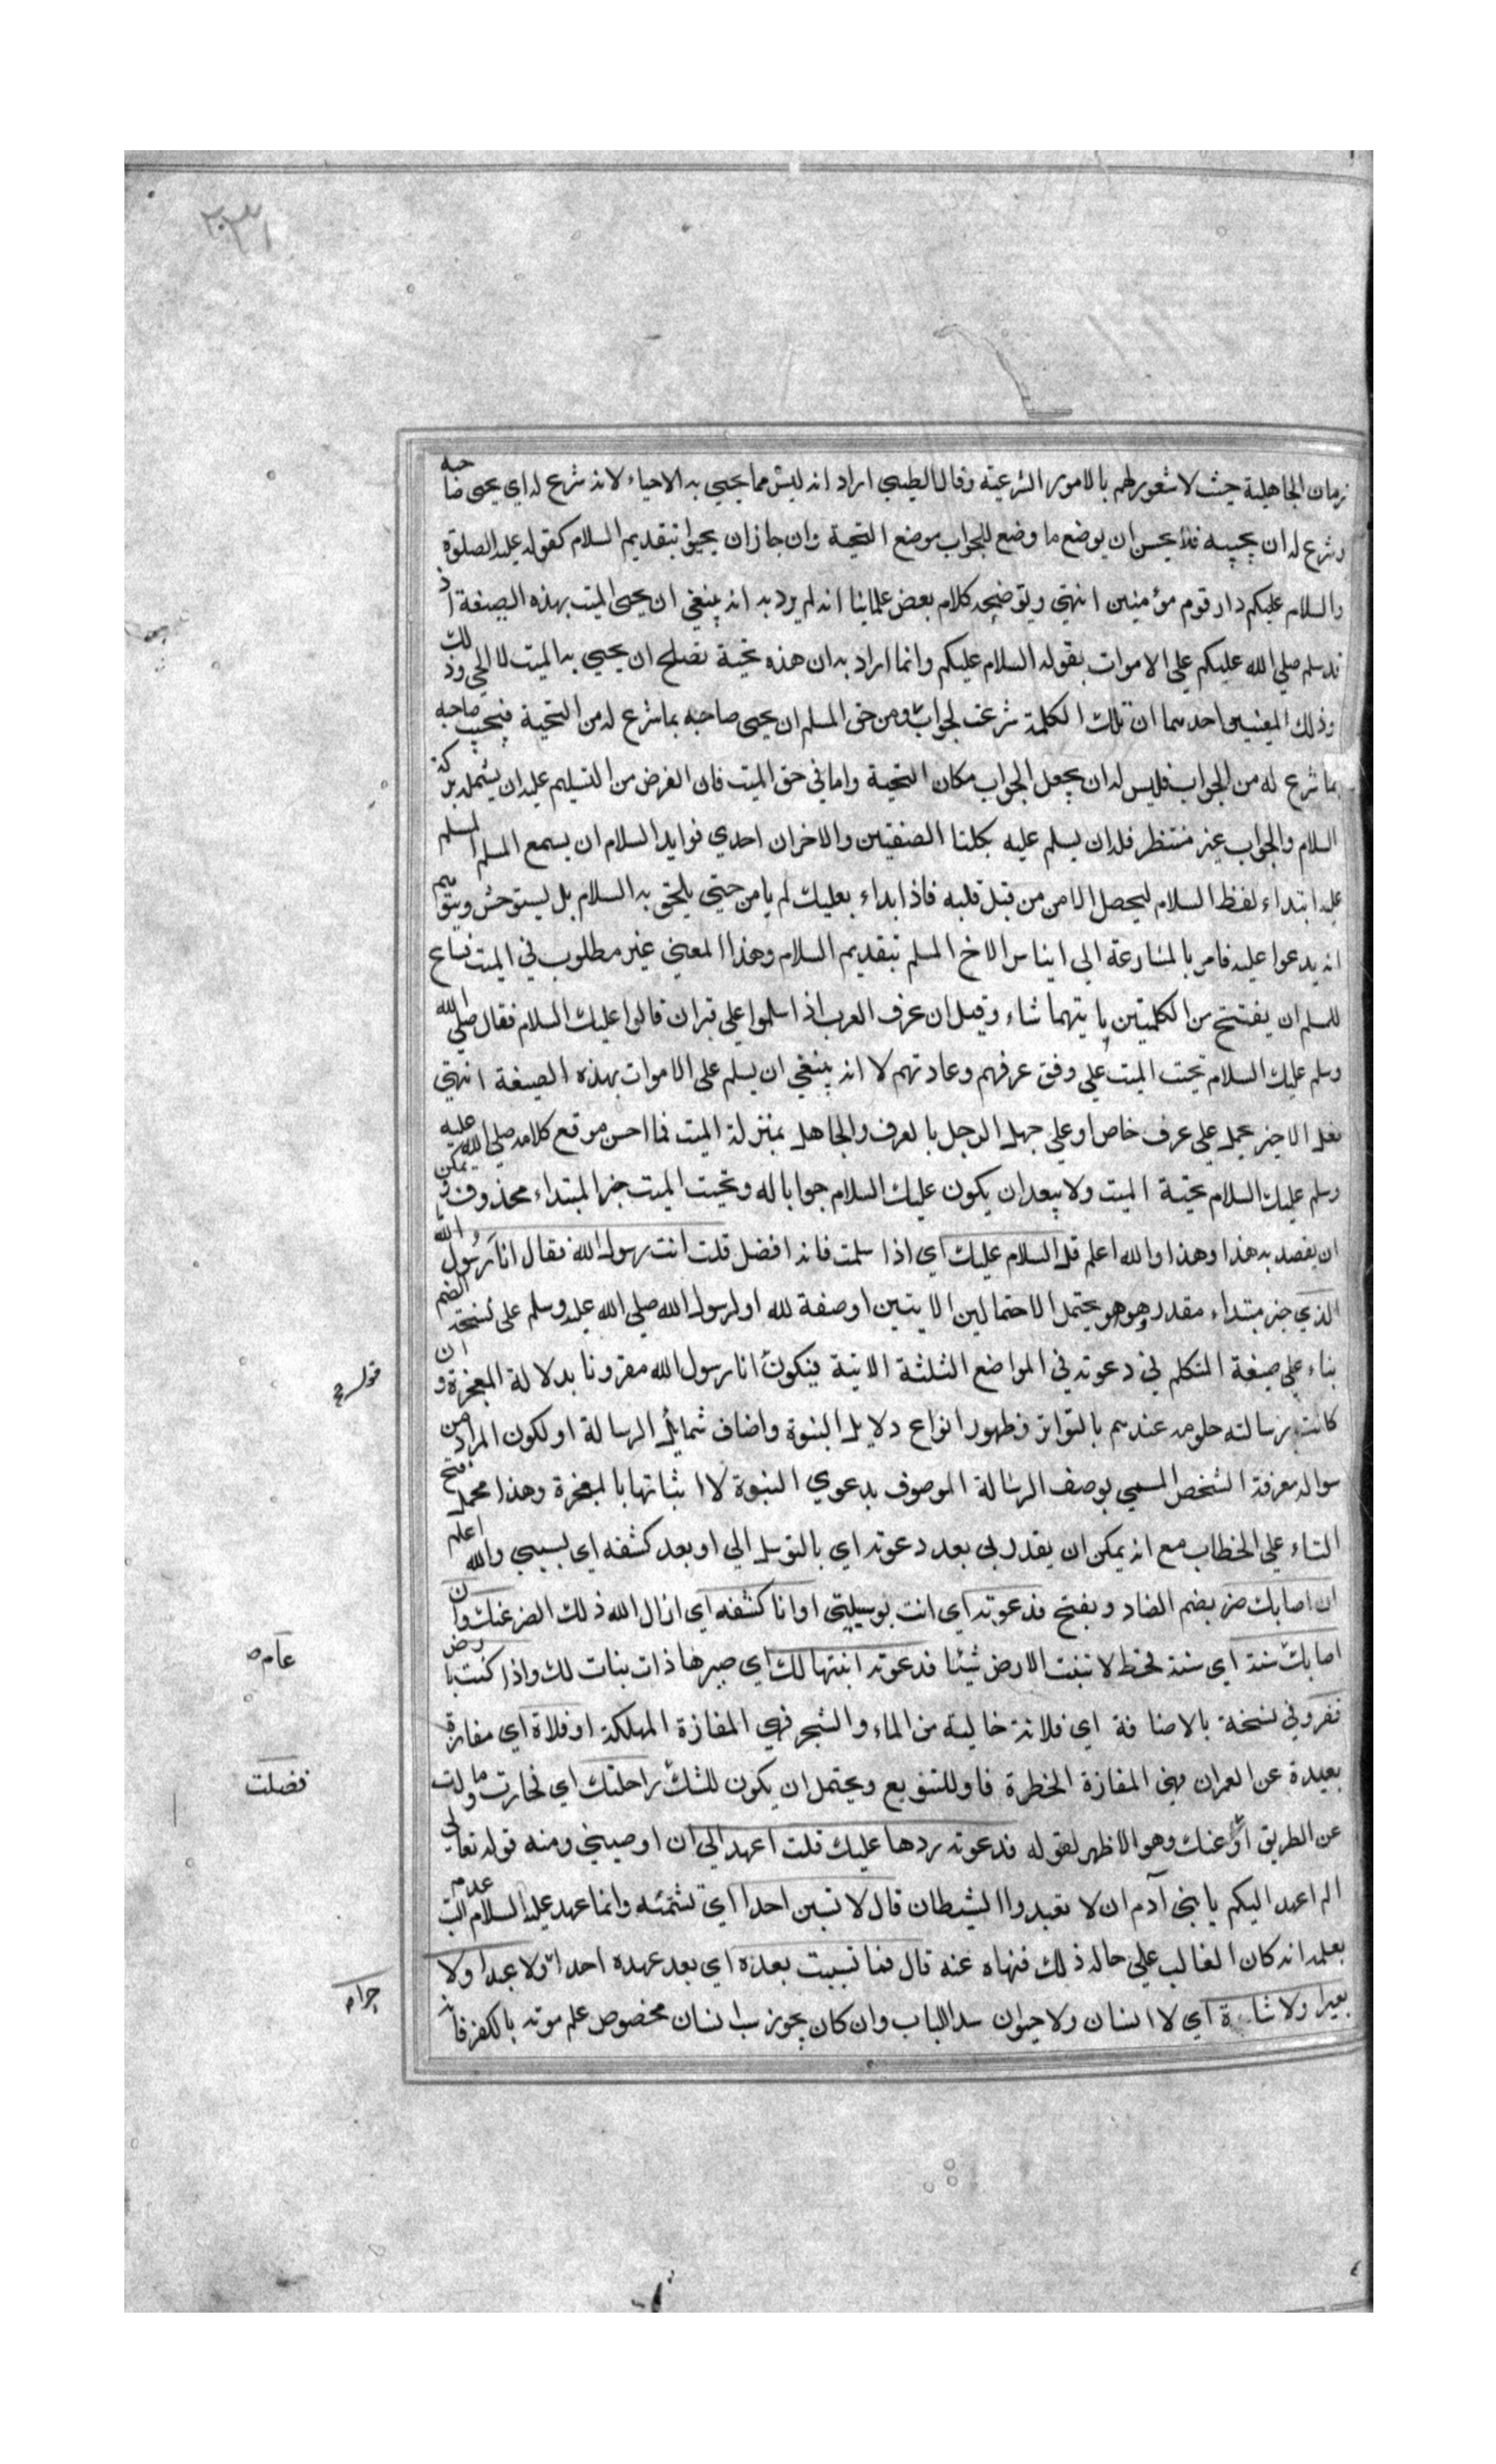 زمان الجاهلية حيث لا شعور لهم بالامور الشرعية وقال الطيبي اراد انه ليس مما يحيي به الاحياء لانه شرع له اي يحيى صاحبه
وشرع له ان يجيبه فلا يحسن ان يوضع ما وضع للجواب موضع التحية وان جاز ان يحيوا بتقديم السلام كقوله عليه الصلوة
والسلام عليكم دار قوم مؤمنين انتهي ويوضحه كلام بعض علمائنا انه لم يرد به انه ينبغي ان يحيى الميت بهذه الصيغة اذ
قد سلم صلي الله عليكم علي الاموات بقوله السلام عليكم وانما اراد به ان هذه تحية تصلح ان يحيي به الميت لا الحي وذلك
وذلك لمعنيين احدهما ان تلك الكلمة شرعت لجواب ومن حق المسلم ان يحيى صاحبه بما شرع له من التحية فيجيب صاحبه
بما شرع له من الجواب فليس له ان يجعل الجواب مكان التحية واما في حق الميت فان الغرض من التسليم عليه ان يشمله بركة
السلام والجواب غير منتظر فله ان يسلم عليه بكلتا الصنفتين والاخران احدي فوايد السلام ان يسمع المسلم المسلم
عليه ابتداء لفظ السلام ليحصل الامن من قبل قلبه فاذا ابداء بعليك لم يامن حتي يلحق به السلام بل يستوحش ويتوهم
انه يدعوا عليه فامر بالمسارعة الي ايناس الاخ المسلم بتقديم السلام وهذا المعني غير مطلوب في الميت فساع
للمسلم ان يفتتح من الكلمتين بايتهما شاء وقيل ان عرف العرب اذا سلموا علي قبر ان قالوا عليك السلام فقال صلي الله
وسلم عليك السلام تحيت الميت علي وفق عرفهم وعادتهم لا انه ينبغي ان يسلم على الاموات بهذه الصيغة انتهي
فعلي الاخير يحمل علي عرف خاص او علي جهل الرجل بالعرف والجاهل بمنزلة الميت فما احسن موقع كلامه صلي الله عليه
وسلم عليك السلام تحية الميت ولا يبعد ان يكون عليك السلام جوابا له وتحيت الميت خبر المبتداء محذوف ويمكن
ان يقصد به هذا وهذا والله اعلم قل السلام عليك اي اذا سلمت فانه افضل قلت انت رسول الله فقال انا رسول الله
الذي خبر مبتداء مقدر هو وهو يحتمل الاحتمالين الايتين او صفة لله او لرسول الله صلي الله عليه وسلم على نسخة الضم
بناء علي صيغة المتكلم في دعوته في المواضع الثلثة الاتية فيكون انا رسول الله مقرونا بدلالة المعجزة وان
كانت رسالته حلومه عندهم بالتواتر وظهور انواع دلايل النبوة واضاف شمايل الرسالة او لكون المراد من
سواله معرفة الشخص المسمي بوصف الرسالة الموصوف بدعوي النبوة لا اثباتها بالمعجزة وهذا محمل فتح
التاء علي الخطاب مع انه يمكن ان يقدر بي بعد دعوته اي بالتوسل الي او بعد كشفه اي بسببي والله اعلم
ان اصابك ضر بضم الضاد وبفتح فدعوته اي انت بوسيلتي او انا كشفه اي ازال الله ذلك الضر عنك وان
اصابك سنة اي سنة قحط لا تنبت الارض شيئا فدعوته انبتها لك اي صيرها ذات بنات لك واذا كنت بارض
قفر وفي نسخة بالاضافة اي فلانة خالية من الماء والشجر فهي المفازة المهلكة او فلاة اي مفازة
بعيدة عن العمران فهي المفازة الخطرة فاو للتنويع ويحتمل ان يكون للشك راحلتك اي فحارت ومالت
عن الطريق او عنك وهو الاظهر لقوله فدعوته ردها عليك قلت اعهد الي ان اوصيني ومنه قوله تعالي
الم اعهد اليكم يا بني آدم ان لا تعبدوا الشيطان قال لا تسبن احدا اي تشتمنه وانما عهد عليه السلام عدم السب
بعلمه انه كان الغالب علي حاله ذلك فنهاه عنه قال فما سببت بعده اي بعد عهده احدا ولا عبدا ولا
بعيرا ولا شاة اي لا انسان ولا حيوان سد الباب وان كان يجوز سب انسان مخصوص علم موته بالكفر فانه
قوله ح
عام ص
فضلت
حرا م